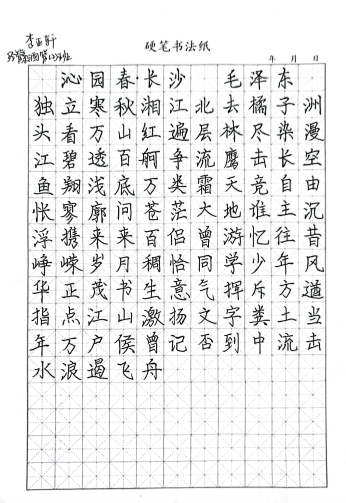 李
硬笔书法纸
年 月 日
沁园春·长沙 毛泽东
独立寒秋湘江北去橘子洲
头看万山红遍层林尽染漫
江碧透百舸争流鹰击长空
鱼翔浅底万类霜天竞自由
怅寥廓问苍茫大地谁主沉
浮携来来百侣曾游忆往昔
峥嵘岁月稠恰同学少年风
华正茂书生意气挥斥方遒
指点江山激扬文字粪土当
年万户侯曾记否到中流击
水浪遏飞舟